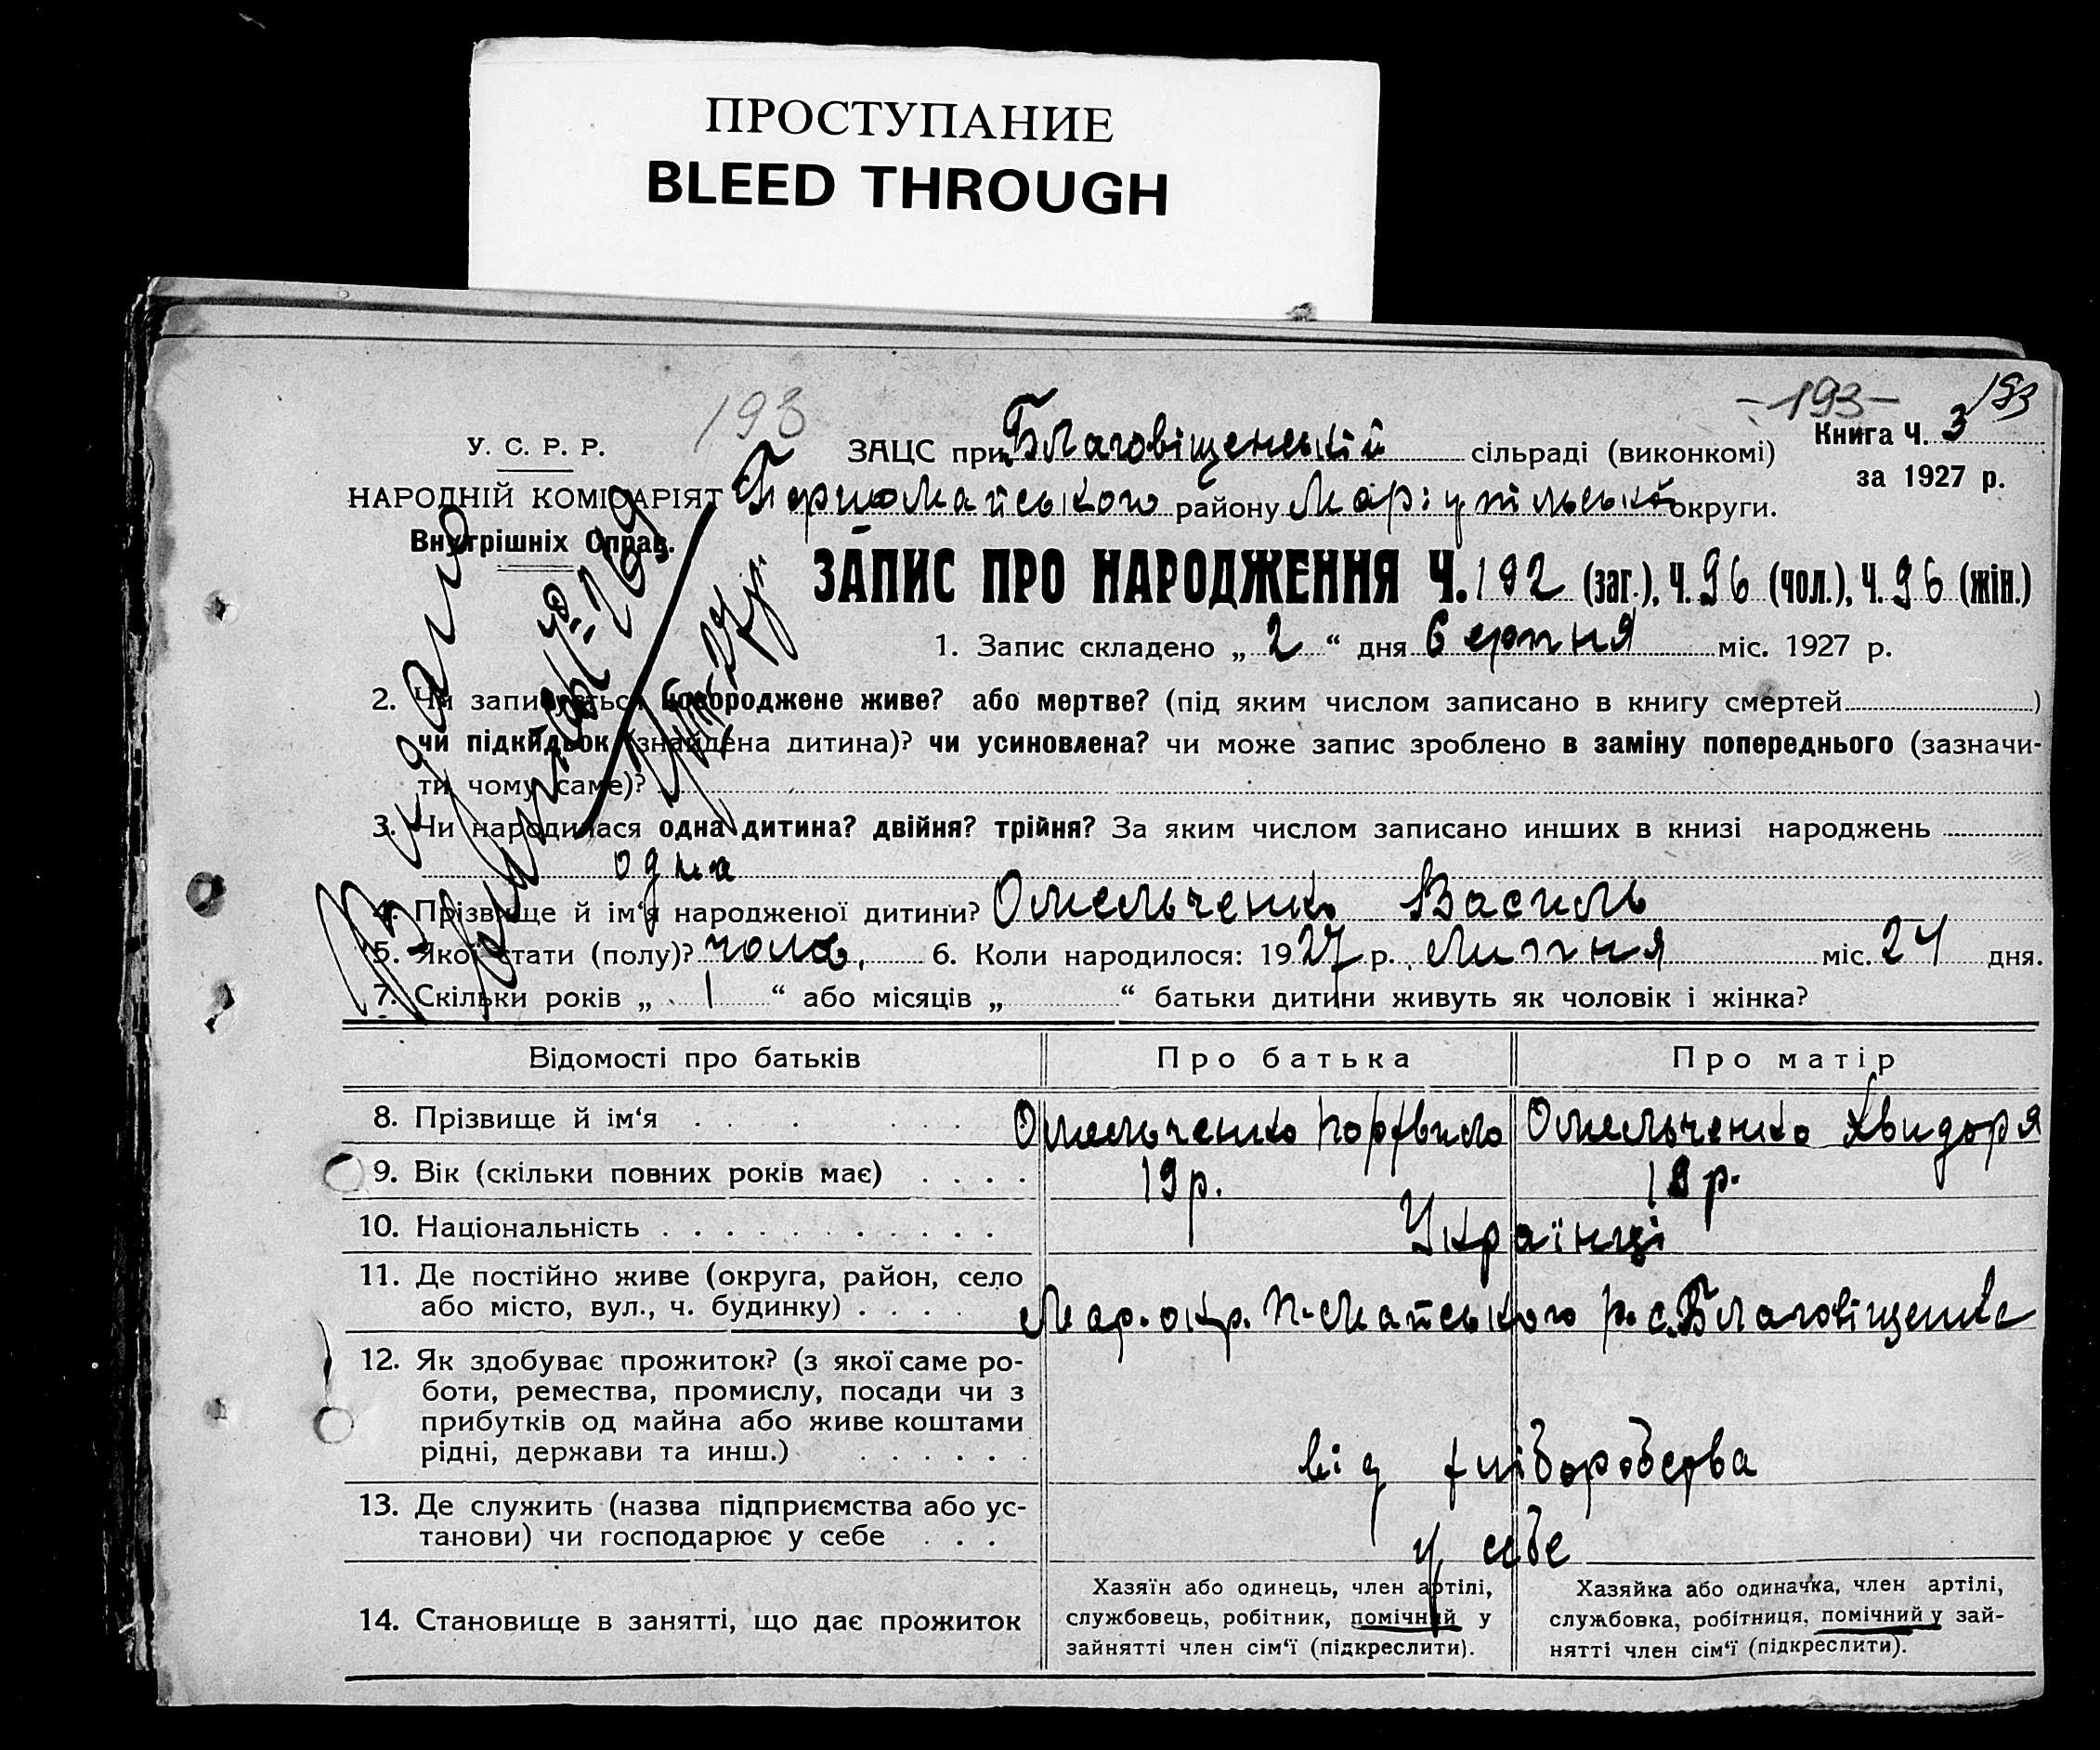 ПРОСТУПАНИЕ
BLEED THROUGH
193
-193-
193
У. С. Р. Р.
НАРОДНІЙ КОМІСАРІЯТ
Внутрішніх Справ.
ЗАЦС при Благовіщенській сільраді (виконкомі)
Книга Ч. 3
за 1927 р.
Першомайського району Маріупільської округи.
ЗАПИС ПРО НАРОДЖЕННЯ Ч. 192 (заг.), Ч. 96 (чол.), Ч. 96 (жін.)
1. Запис складено „ 2 “ дня Серпня міс. 1927 р.
2. Чи записується новороджене живе? або мертве? (під яким числом записано в книгу смертей )
чи підкидьок (знайдена дитина)? чи усиновлена? чи може запис зроблено в заміну попереднього (зазначи-
ти чому саме)?
3. Чи народилася одна дитина? двійня? трійня? За яким числом записано инших в книзі народжень
одна
4. Прізвище й ім‘я народженої дитини? Омельченко Василь
5. Якої стати (полу)? чолов. 6. Коли народилося: 1927 р. Липня міс. 24 дня.
7. Скільки років „ 1 “ або місяців „ “ батьки дитини живуть як чоловік і жінка?
Видано
Відомості про батьків Про батька Про матір
8. Прізвище й ім‘я Омельченко Омельченко Хвидоря
9. Вік (скільки повних років має) 19 р. 18 р.
10. Національність Українці
11. Де постійно живе (округа, район, село
або місто, вул., ч. будинку) Мар. окр. П-Майського р. с. Благовіщенка
12. Як здобуває прожиток? (з якої саме ро-
боти, ремества, промислу, посади чи з
прибутків од майна або живе коштами
рідні, держави та инш.) від хліборобства
13. Де служить (назва підприємства або ус-
танови) чи господарює у себе у себе
14. Становище в занятті, що дає прожиток
Хазяїн або одинець, член артілі,
службовець, робітник, помічний у
зайнятті член сім‘ї (підкреслити).
Хазяйка або одиначка, член артілі,
службовка, робітниця, помічний у зай-
нятті член сім‘ї (підкреслити).